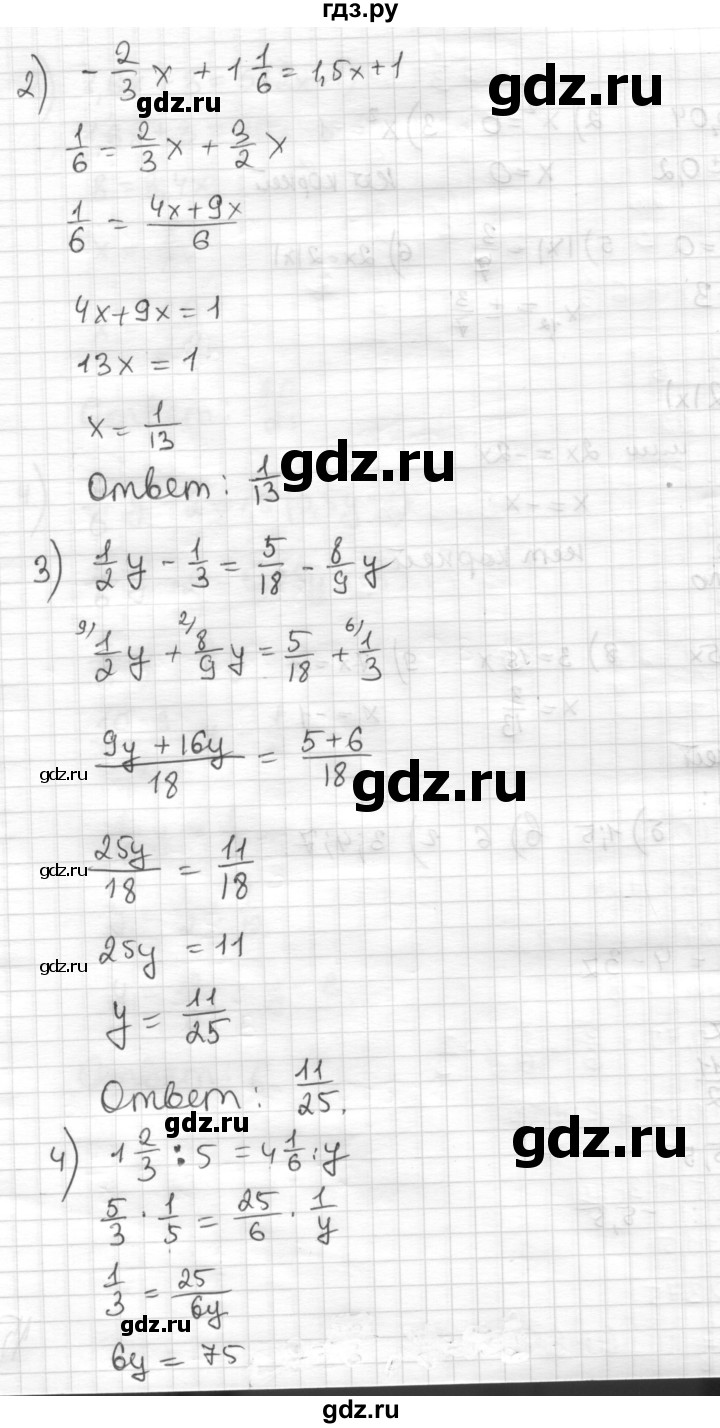 гдз.ру
2) -2/3 x + 1 1/6 = 1,5x + 1
gdz.ru gdz.ru
1/6 = 2/3 x + 3/2 x
1/6 = (4x+9x)/6
4x+9x = 1
13x = 1
x = 1/13
Ответ: 1/13
gdz.ru
3) 1/2 y - 1/3 = 5/18 - 8/9 y
9) 1/2 y + 2) 8/9 y = 5/18 + 6) 1/3
(9y + 16y)/18 = (5+6)/18
gdz.ru gdz.ru
25y/18 = 11/18
gdz.ru
25y = 11
gdz.ru
y = 11/25
Ответ: 11/25.
gdz.ru gdz.ru
4) 1 2/3 : 5 = 4 1/6 : y
5/3 · 1/5 = 25/6 · 1/y
1/3 = 25/6y
gdz.ru
6y = 75
гдз.ру